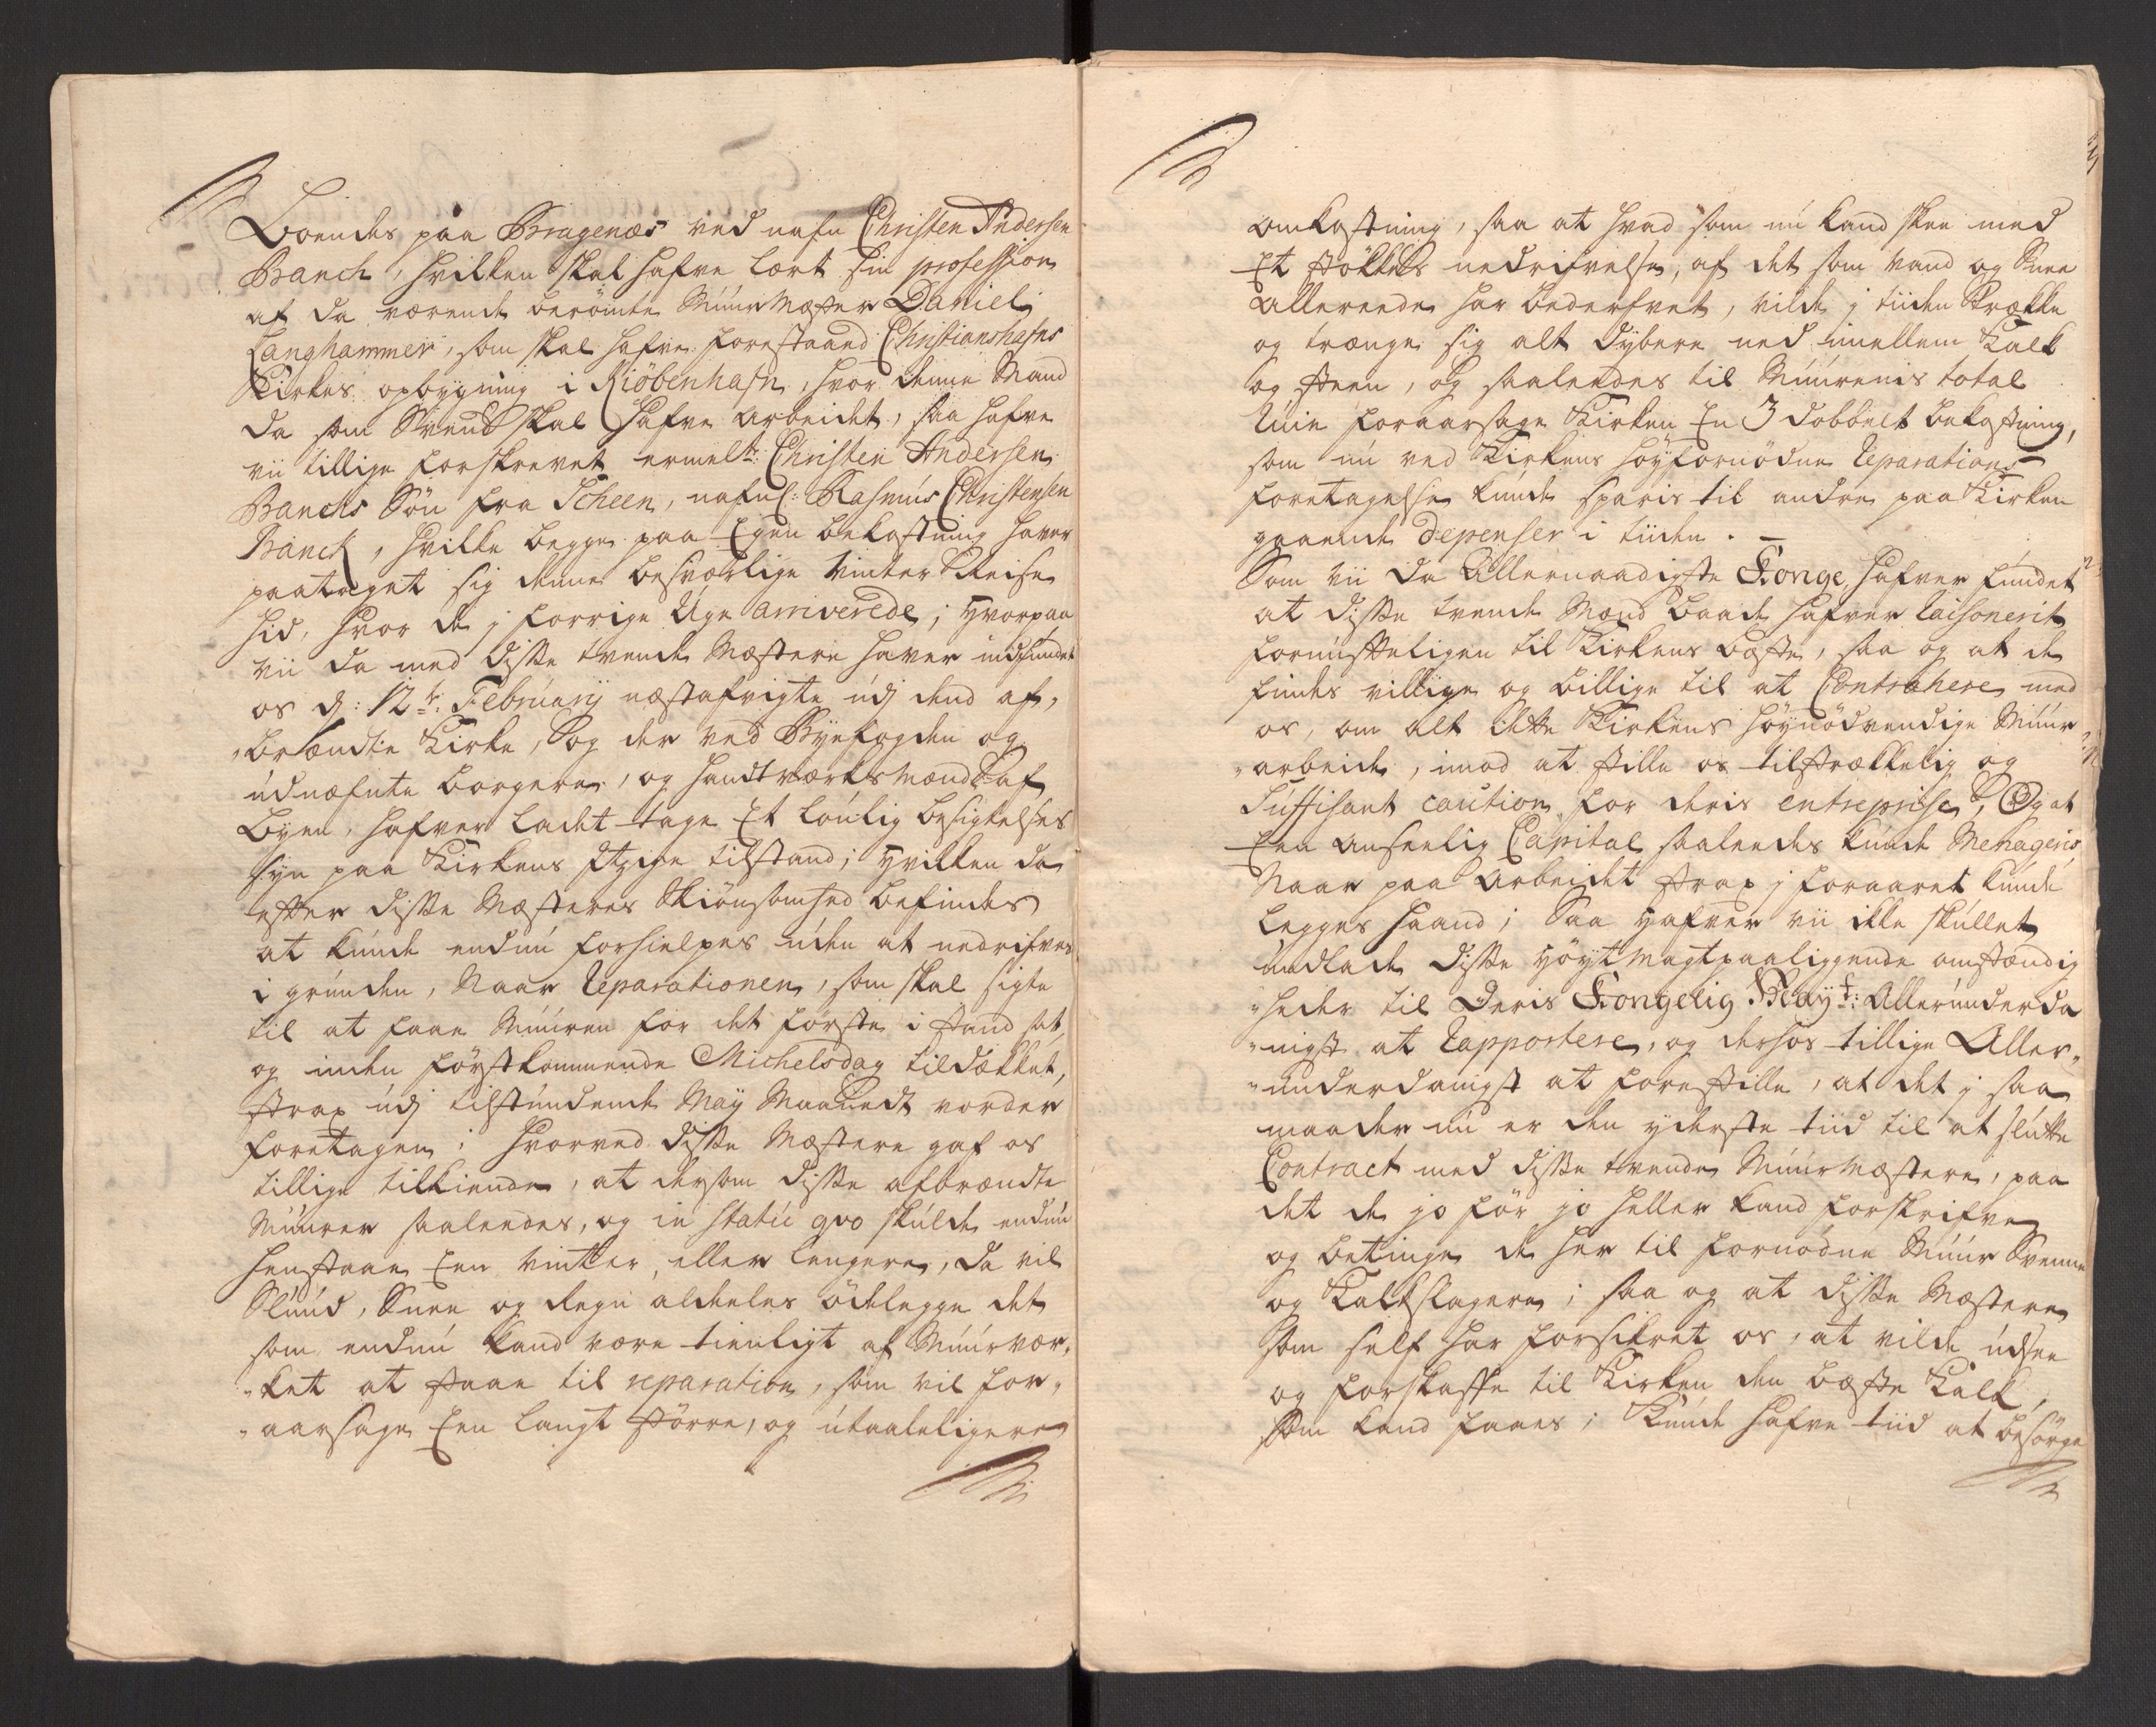 Boendes paa Bragenæs ved nafn Christen Andersen
Banch, hvilken skal hafve lært sin profession
af da værende berömte Muur Mæster Daniel
Langhammer, som skal hafve forestaaed Christianshafns
Kirkes opbygning i Kiöbenhafn, hvor denne Mand
da som Svend skal hafve arbeidet, saa hafve
vii tillige forskrevet ermelte: Christen Andersen
Banchs Sön fra Scheen, nafnl: Rasmus Christensen
Banck, hvilke begge paa Egen bekostning haver
paataget sig denne besværlige Vinter Reise
hid, hvor de j forrige Uge arriverede; hvorpaa
vii da med disse tvende Mæstere haver indfundet
os d: 12te: Februarij næstafvigte udj dend af,
„brændte Kirke, og der ved Byefogden og
udnæfnte borgere, og handtværksmænd af
byen, hafver ladet tage Et louflig besigtelses
syn paa Kirkens Itzige tilstand; hvilken da
efter disse Mæsteres Skiönsomhed befindes
at kunde endnu forhielpes uden at nedrifves
i grunden, Naar Reparationen, som skal sigte
til at faae Muuren for det förste i stand sat,
og inden förstkommende Michelsdag tildækket,
strax udj tilstundende Maij Maanedt vorder
foretagen; hvorved disse Mæstere gaf os
tillige tilkiende, at dersom disse afbrændte
Muurer saaledes, og in statu qvo skulde endnu
henstaae Een vinter, eller lengere, da vil
Sluud, Snee og Regn aldeeles ödelegge det
som endnu kand være tienligt af Muurvær,
„ket at staae til reparation, som vil for,
„aarsage Een langt större, og utaaleligere
omkostning, saa at hvad som nu kand skee med
Et stökkes nedrifvelse, af det som vand og Snee
allereede har bederfvet, vilde j tiiden strække
og trænge sig alt dybere ned imellem Kalk
og steen, og saaleedes til Muurenis total
Ruin foraarsage Kirken En 3 dobbelt bekostning,
som nu ved Kirkens höyfornödne Reparations
foretagelse kunde sparis til andre paa Kirken
gaaende depenser i tiiden. –
Som vii da Allernaadigste Konge, hafver fundet
at disse tvende Mænd baade hafver raisonerit
fornufteligen til Kirkens bæste, saa og at de
findes villige og billige til at Contrahere med
os, om alt dette Kirkens höynödvendige Muur
„arbeide, imod at stille os tilstrækkelig og
suffisant caution for deris entreprise, Og at
Een anseelig Capital saaleedes kunde Menageris
Naar paa arbeidet strax j foraaret kunde
legges haand; Saa hafver vii ikke skullet
undlade disse höyt magtpaaliggende omstændig
„heder til Deris Kongelig Mayt: Allerunderda
„nigst at Rapportere, og derhos tillige Aller,
„underdanigst at forestille, at det j saa
maader nu er den yderste tiid til at slutte
Contract med disse tvende Muur Mæstere, paa
det de jo för jo heller kand forskrifve
og betinge de her til fornödne Muur Svenne
og Kalkslagere; saa og at disse Mæstere
som self har forsikret os, at vilde udsee
og forskaffe til Kirken den bæste Kalk,
som kand faaes; Kunde hafve tiid at besörge